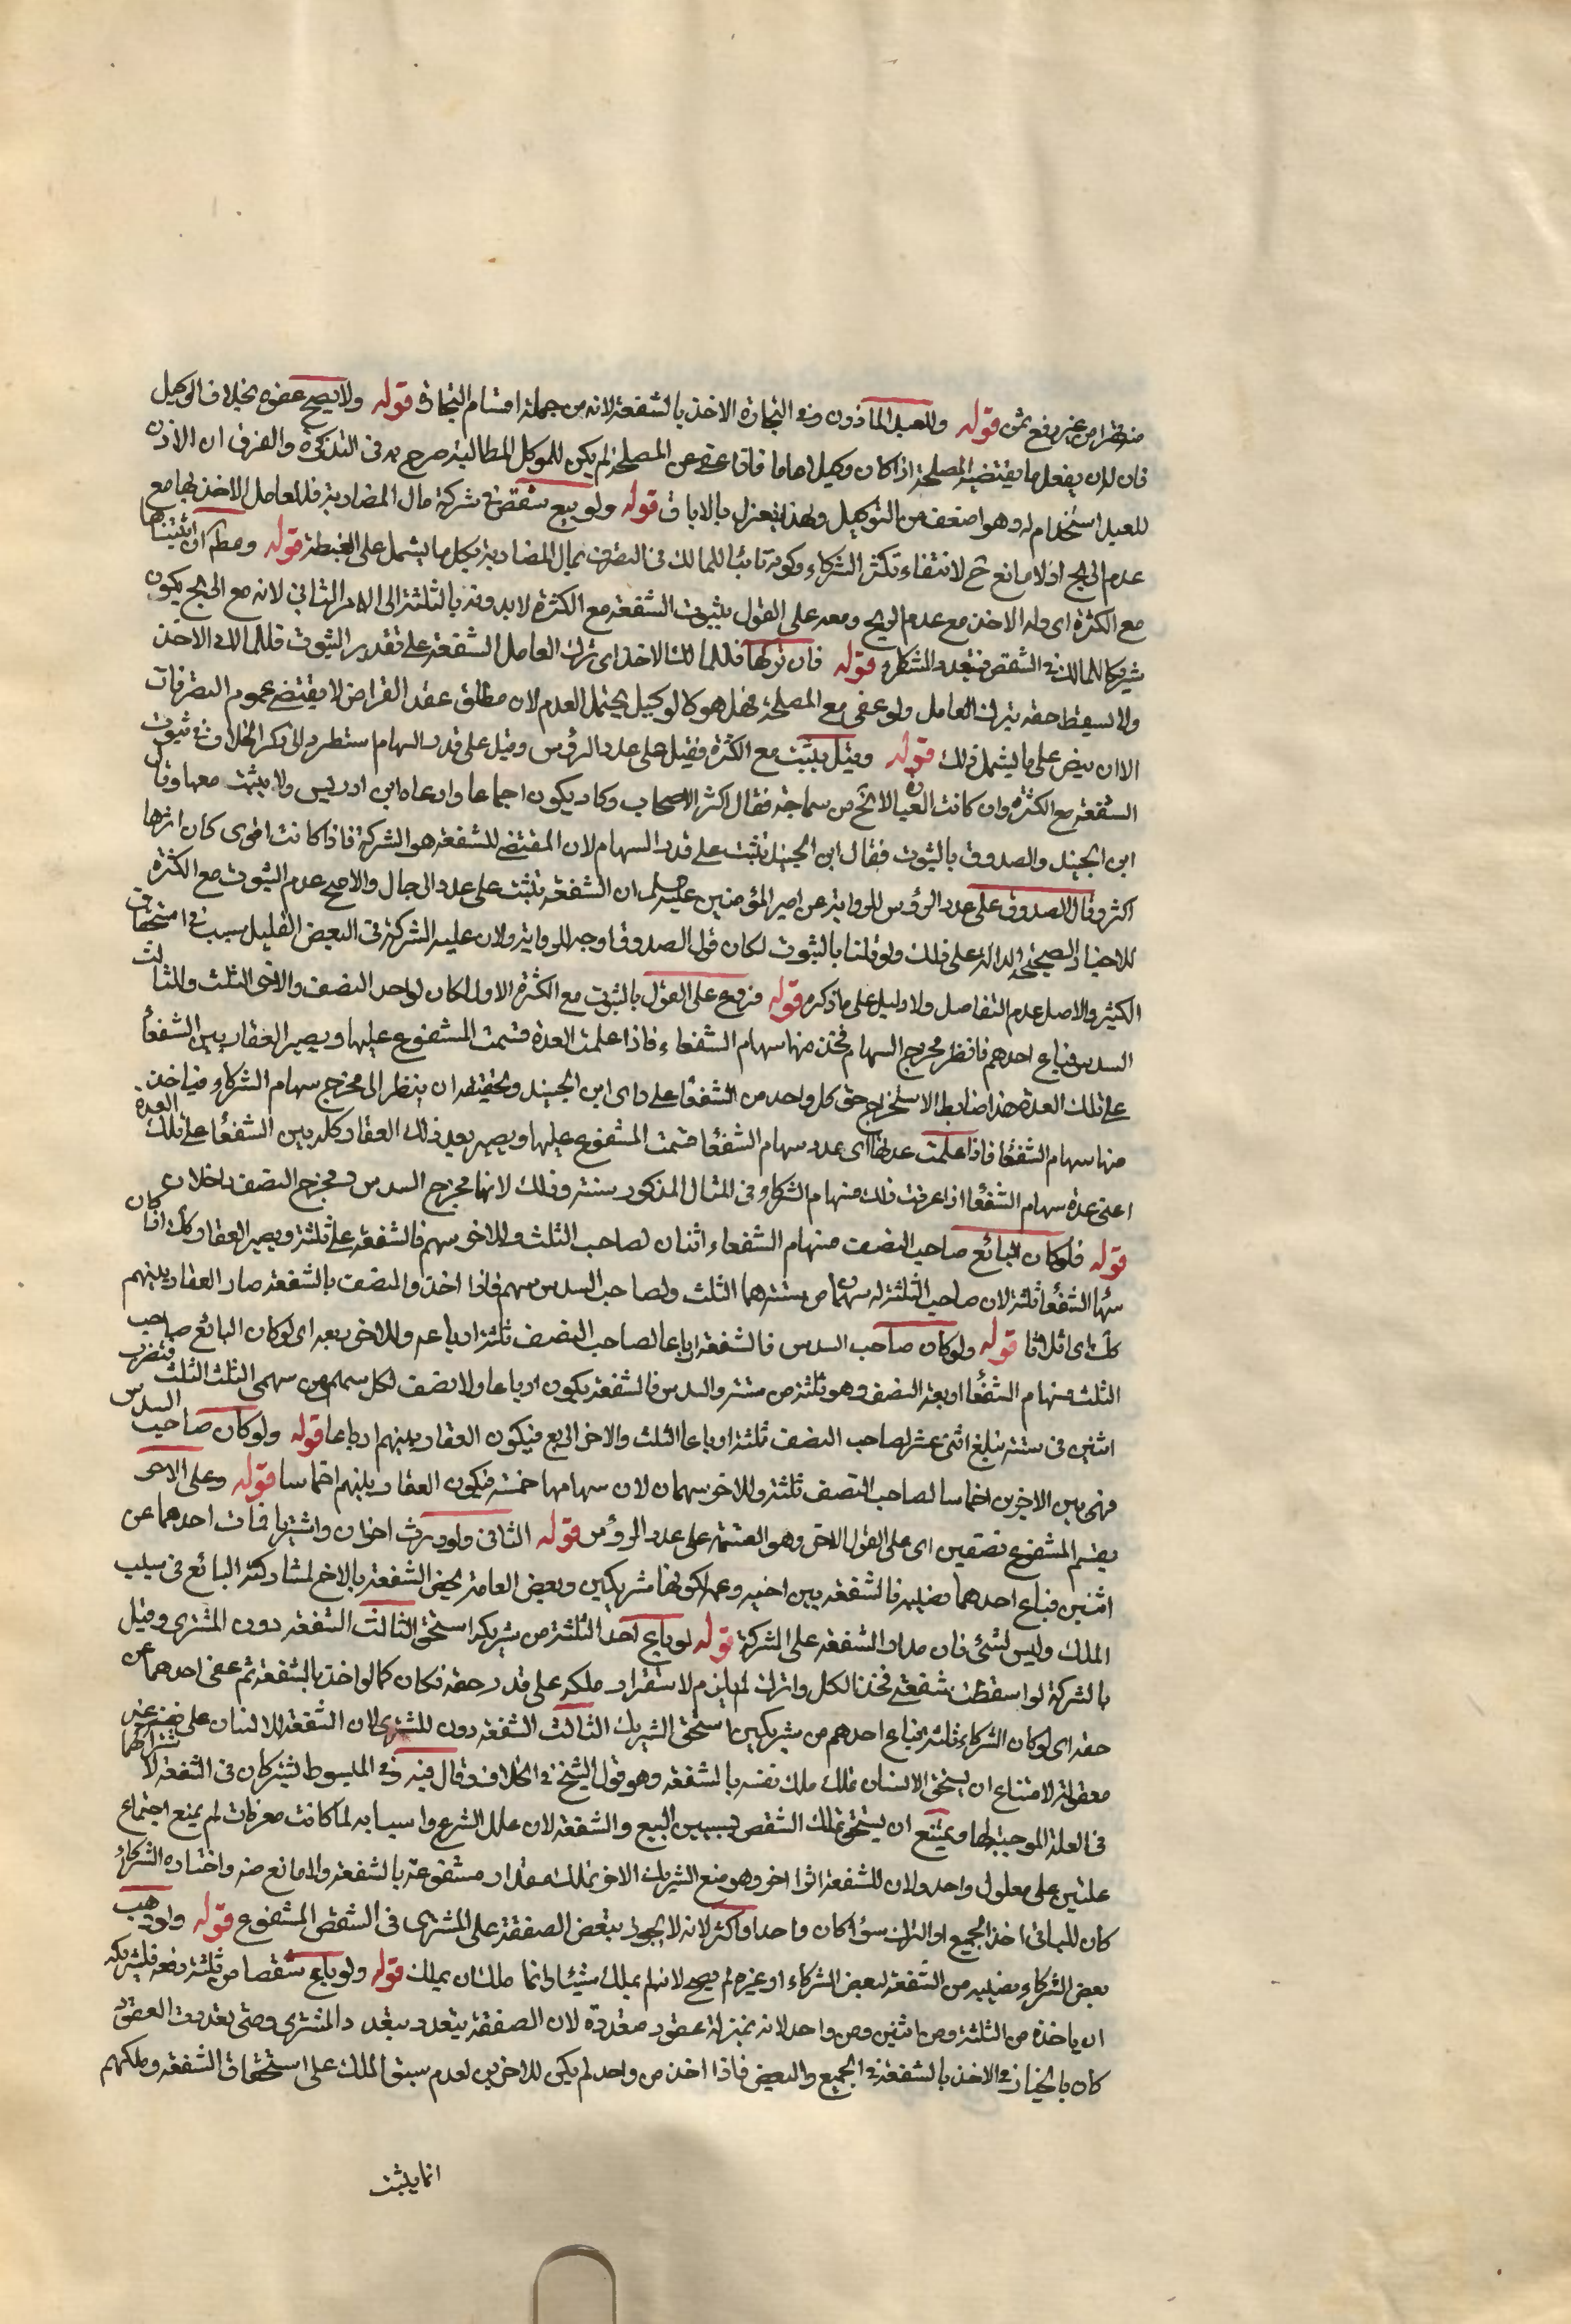 منتظرا من غير دفع ثمن قوله وللعبد المأذون في التجارة الاخذ بالشفعة لانه من جملة اقسام التجارة قوله ولا يصح عفوه بخلاف الوكيل
فان له ان يفعل ما يقتضيه المصلحة اذا كان وكيلا عاما فاذا عفى عن المصلحة لم يكن للموكل المطالبة صرح به في التذكرة والفرق ان الاذن
للعبد استخدام له وهو اضعف من التوكيل ولهذا ينعزل بالاباق قوله ولو بيع شقص في شركة مال المضاربة فللعامل الاخذ بها مع
عدم الربح اذ لا مانع ح لانتفاء تكثر الشركاء وكونه نائبا للمالك في التصرف بمال المضاربة بكل ما يشمل على الغبطة قوله ومطلقا ان اثبتناها
مع الكثرة اى وله الاخذ مع عدم الربح ومعه على القول بثبوت الشفعة مع الكثرة لا بدونه بالثلثة الى الامر الثاني لانه مع الربح يكون
شريكا للمالك في الشقص فيتعدد الشركاء قوله فان تركها فللمالك الاخذ اى ترك العامل الشفعة على تقدير الثبوت فللمالك الاخذ
ولا يسقط حقه بترك العامل ولو عفى مع المصلحة فهل هو كالوكيل يحتمل العدم لان مطلق عقد القراض لا يقتضي عموم التصرفات
الا ان ينص على ما يشمل ذلك قوله وقيل يثبت مع الكثرة فقيل على عدد الرؤس وقيل على قدر السهام استطرد الى ذكر الخلاف في ثبوت
الشفعة مع الكثرة وان كانت العبارة لا تخ من سماجة فقال اكثر الاصحاب وكاد يكون اجماعا وادعاه ابن ادريس ولا يثبت معها وقال
ابن الجنيد والصدوق بالثبوت فقال ابن الجنيد تثبت على قدر السهام لان المقتضي للشفعة هو الشركة فاذا كانت اقوى كان اثرها
اكثر وقال الصدوق على عدد الرؤس للرواية عن امير المؤمنين عليه السلم ان الشفعة تثبت على عدد الرجال والاصح عدم الثبوت مع الكثرة
للاخبار الصحيحة الدالة على ذلك ولو قلنا بالثبوت لكان قول الصدوق اوجه للرواية ولان علية الشركة في البعض القليل سبب في استحقاق
الكثير والاصل عدم التفاضل ولا دليل على ما ذكره قوله فروع على القول بالثبوت مع الكثرة الاول لو كان لواحد النصف والاخر الثلث وللثالث
السدس فباع احدهم فانظر مخرج السهام فخذ منها سهام الشفعاء فاذا علمت العدة قسمت المشفوع عليها ويصير العقار بين الشفعا
على تلك العدة هذا ضابط الاستخراج حق كل واحد من الشفعا على راى ابن الجنيد وتحقيقه ان ينظر الى مخرج سهام الشركاء فياخذ
منها سهام الشفعا فاذا علمت عدتها اى عدد سهام الشفعا قسمت المشفوع عليها ويصير بعد ذلك العقار كله بين الشفعا على تلك العدة
اعنى عدة سهام الشفعا اذا عرفت ذلك فسهام الشركاء في المثال المذكور ستة وذلك لانها مخرج السدس ومخرج النصف داخلان
قوله فلو كان البائع صاحب النصف فسهام الشفعاء اثنان لصاحب الثلث وللاخر سهم فالشفعة على ثلثة ويصير العقار كك اذا كان
سهام الشفعا ثلثة لان صاحب الثلث له سهمان من ستة هما الثلث ولصاحب السدس سهم فاذا اخذوا النصف بالشفعة صار العقار بينهم
كك اى اثلاثا قوله ولو كان صاحب السدس فالشفعة ارباعا لصاحب النصف ثلثة ارباعه وللاخر ربعه اى لو كان البائع صاحب
الثلث فسهام الشفعا اربعة النصف وهو ثلثة من ستة والسدس فالشفعة يكون ارباعا ولا نصف لكل سهم من سهمى الثلث الثلث فتضرب
اثنين في ستة تبلغ اثنى عشر لصاحب النصف ثلثة ارباعا الثلث والاخر الربع فيكون العقار بينهم ارباعا قوله ولو كان صاحب السدس
فهى بين الاخرين اخماسا لصاحب النصف ثلثة وللاخر سهمان لان سهامها خمسة فيكون العقار بينهم اخماسا قوله وعلى الاخر
يقسم المشفوع نصفين اى على القول الاخر وهو القسمة على عدد الرؤس قوله الثاني ولو ورث اخوان واشتريا فمات احدهما عن
اثنين فباع احدهما نصيبه فالشفعة بين اخيه وعمه لكونها شريكين وبعض العامة يخص الشفعة بالاخ لمشاركته البائع في سبب
الملك وليس لشئ فان مدار الشفعة على الشركة قوله لو باع احد الثلثة من شريكه استحق الثالث الشفعة دون المشترى وقيل
بالشركة لو اسقطت شفعتى فخذ الكل واترك لم يلزم لاستقرار ملكه على قدر حقه فكان كما لو اخذ بالشفعة ثم عفى احدهما عن
حقه اى لو كان الشركاء ثلثة فباع احدهم من شريكين استحق الشريك الثالث الشفعة دون المشترى لان الشفعة للانسان على نفسه غير
معقولة لامتناع ان يستحق الانسان تملك ملك نفسه بالشفعة وهو قول الشيخ في الخلاف وقال فيه وفي المبسوط يشتركان في الشفعة لاشتراكهما
في العلة الموجبة لها ويمتنع ان يستحق تملك الشقص بسببين البيع والشفعة لان علل الشرع واسبابه لما كانت معرفات لم يمنع اجتماع
علتين على معلول واحد ولان للشفعة اثرا اخر وهو منع الشريك الاخر تملك مقدار مشفوعه بالشفعة ولا مانع منه واختاره الشركاء
كان للباقى اخذ الجميع او الترك سواء كان واحدا واكثر لانه لا يجوز تبعض الصفقة على المشترى في الشقص المشفوع قوله ولو وهب
بعض الشركاء نصيبه من الشفعة لبعض الشركاء او غيره لم يصح لانه لم يملك شيئا وانما ملك ان يملك قوله ولو باع شقصا من ثلثة دفعة فلشريكه
ان ياخذه من الثلثة ومن اثنين ومن واحد لانه بمنزلة عقود متعددة لان الصفقة يتعدد بتعدد المشترى ومتى تعددت العقود
كان بالخيار في الاخذ بالشفعة في الجميع والبعض فاذا اخذ من واحد لم يكن للاخرين لعدم سبق الملك على استحقاق الشفعة وملكهم
انما يثبت